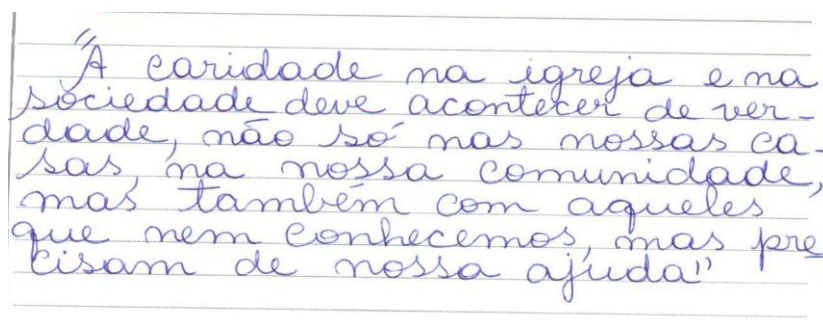 "A caridade na igreja e na
sociedade deve acontecer de ver-
dade, não só nas nossas ca-
sas, na nossa comunidade,
mas também com aqueles
que nem conhecemos, mas pre
cisam de nossa ajuda"